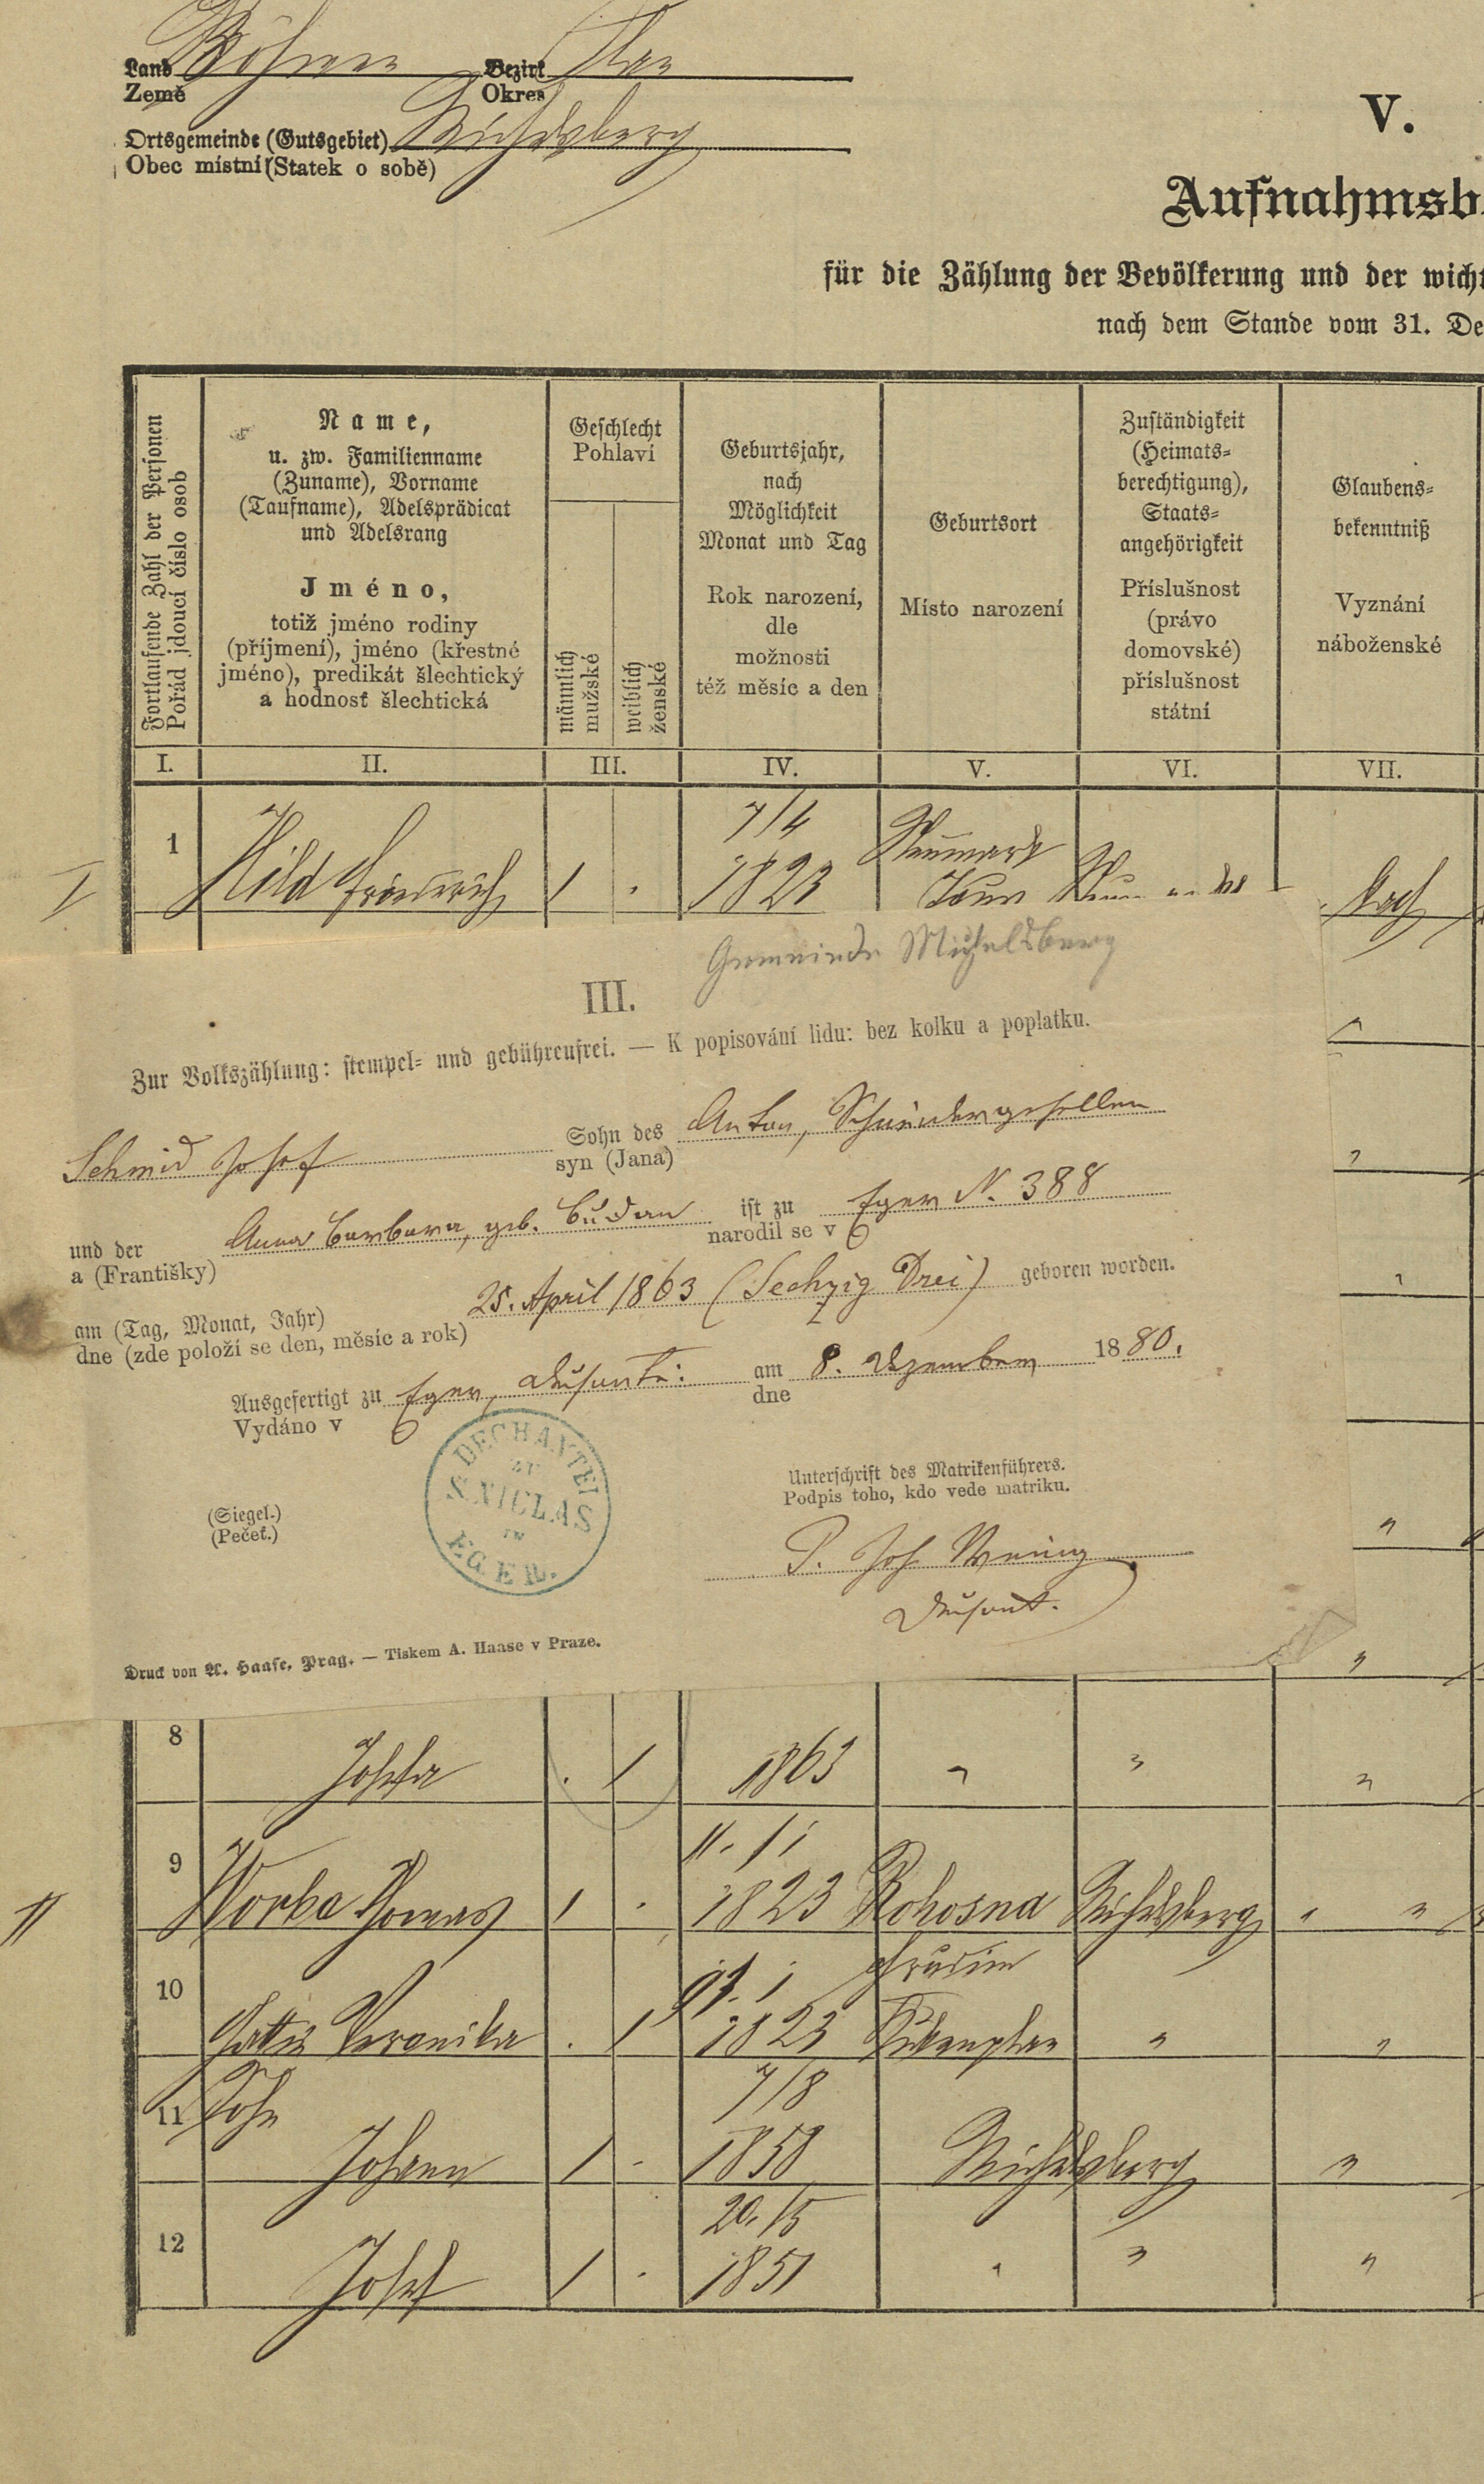 Land Böhmen Bezirk Plan
Země Okres
Ortsgemeinde (Gutsgebiet) Michelsberg
Obec místní (Statek o sobě)
V.
Aufnahmsb
für die Zählung der Bevölkerung und der wicht
nach dem Stande vom 31. De
Fortlaufende Zahl der Personen
Pořád jdoucí číslo osob
Name,
u. zw. Familienname
(Zuname), Vorname
(Taufname), Adelsprädicat
und Adelsrang
Jméno,
totiž jméno rodiny
(příjmení), jméno (křestné
jméno), predikát šlechtický
a hodnosť šlechtická
Geschlecht
Pohlaví
männlich
mužské
weiblich
ženské
Geburtsjahr,
nach
Möglichkeit
Monat und Tag
Rok narození,
dle
možnosti
též měsíc a den
Geburtsort
Místo narození
Zuständigkeit
(Heimats-
berechtigung),
Staats-
angehörigkeit
Příslušnost
(právo
domovské)
příslušnost
státní
Glaubens-
bekenntniß
Vyznání
náboženské
I. II. III. IV. V. VI. VII.
7/4 Neumark
I 1 Hild Friedrich 1 . 1823 Kath
Gemeinde Michelsberg
III.
Zur Volkszählung: stempel- und gebührenfrei. — K popisování lidu: bez kolku a poplatku.
Schmid Josef Sohn des Anton, Schneidergesellen
syn (Jana)
und der Anna Barbara, geb. Budan ist zu Eger N. 388
a (Františky) narodil se v
am (Tag, Monat, Jahr) 25. April 1863 (Sechzig Drei) geboren worden.
dne (zde položí se den, měsíc a rok)
Ausgefertigt zu Eger, Dechantei: am 8. Dezember 1880.
Vydáno v dne
DECHANTEI
ZU
S. NICLAS
IN
EGER.
(Siegel.)
(Pečeť.)
Unterschrift des Matrikenführers.
Podpis toho, kdo vede matriku.
P. Jos.
Dechant.
Druck von A. Haase, Prag. — Tiskem A. Haase v Praze.
8 Josefa . 1 1863 " " "
11. 1
II 9 Worba Thomas 1 . 1823 Rohosna Michelsberg " "
Chrudim
10 Gattin Veronika . 1 1823 Kuttenplan " "
11 Sohn 7/8
Johann 1 - 1858 Michelsberg "
20. /5
12 Josef 1 . 1851 " " "